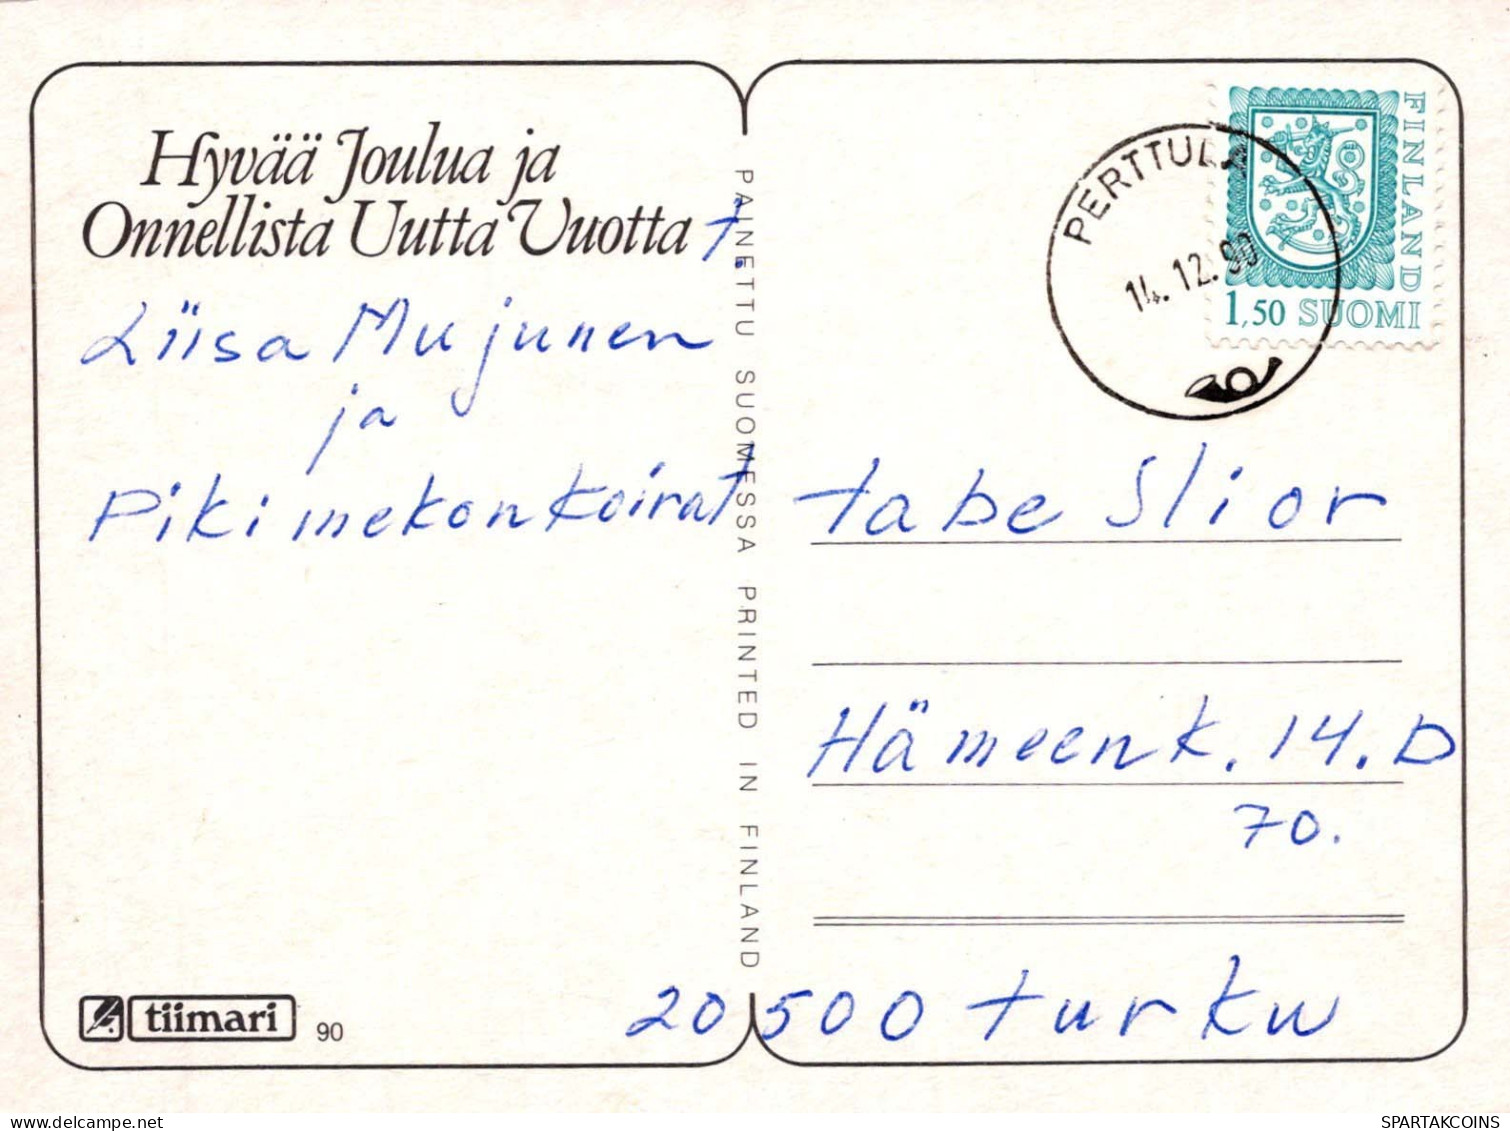 Hyvää Joulua ja
Onnellista Uutta Vuotta
t.
Liisa Mujunen
ja
Pikimekonkoirat
PAINETTU SUOMESSA PRINTED IN FINLAND
tiimari 90
PERTTULA
14.12.90
FINLAND
1,50 SUOMI
tabe Slior
Hämeenk. 14. D
70.
20500 turku
SPARTAKCOINS